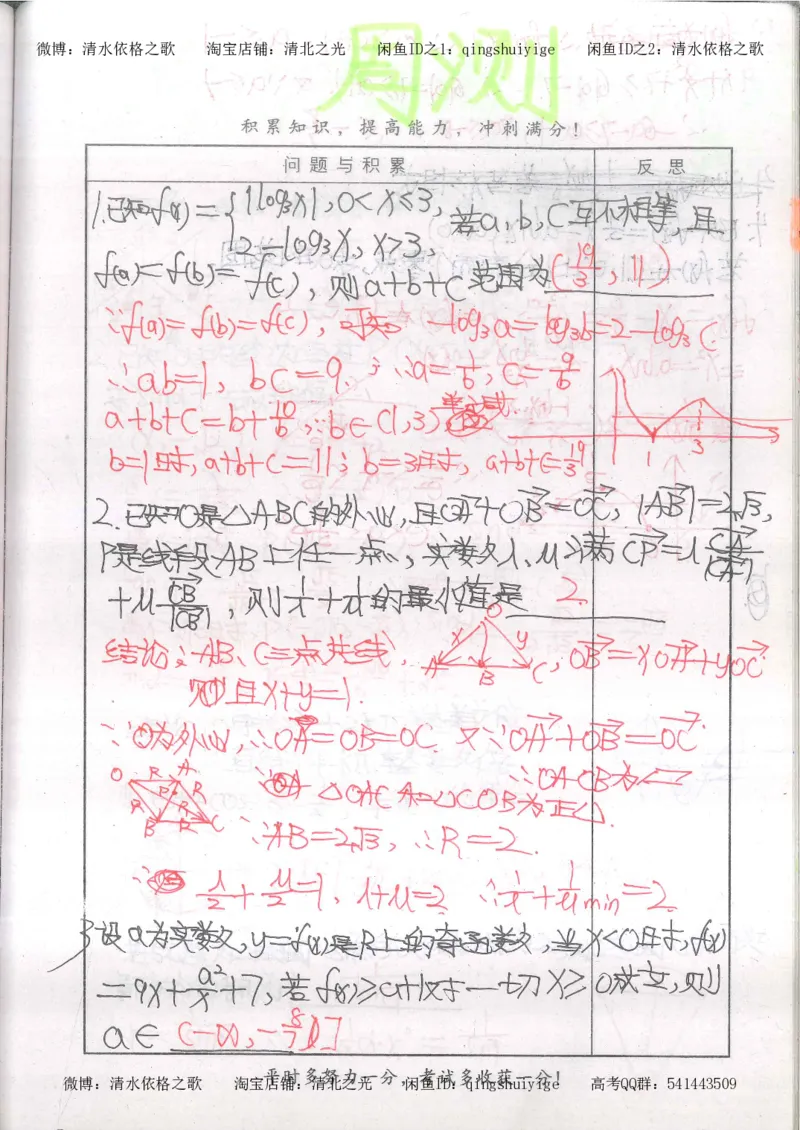 微博：清水依格之歌 淘宝店铺：清北之光 闲鱼ID之1：qingshuiyige 闲鱼ID之2：清水依格之歌
周测
积累知识，提高能力，冲刺满分！
问题与积累 反思
1.已知f(x)={|log₃x|,0<x≤3,
2-log₃x,x>3, 若a,b,c互不相等,且
f(a)=f(b)=f(c),则a+b+c范围为(19/3,11)
∵f(a)=f(b)=f(c),可知 -log₃a=log₃b=2-log₃c
∴ab=1, bc=9. ∴a=1/b,c=9/b
a+b+c=b+10/b,∵b∈(1,3),
b=1时,a+b+c=11;b=3时,a+b+c=19/3
1 3
2.已知O是△ABC的外心,且OA+OB=OC,|AB|=2√3,
P是线段AB上任一点,实数λ、μ满CP=λCA/|CA|
+μCB/|CB|,则1/λ+1/μ的最小值是 2.
结论:AB、C三点共线, OB=xOA+yOC
则且x+y=1.
O x y A B C
∵O为外心,∴OA=OB=OC. 又∵OA+OB=OC
∴OACB为▱
O R A R R R R B R C
∴△OAC和△COB为正△.
∵AB=2√3,∴R=2.
λ/2+μ/2=1,λ+μ=2 ∴1/λ+1/μ min=2.
3设a为实数,y=f(x)是R上的奇函数,当x<0时,f(x)
=9x+a²/x+7,若f(x)≥a+1对一切x≥0成立,则
a∈ (-∞,-8/7]
平时多努力一分，考试多收获一分！
微博：清水依格之歌 淘宝店铺：清北之光 闲鱼ID：qingshuiyige 高考QQ群：541443509